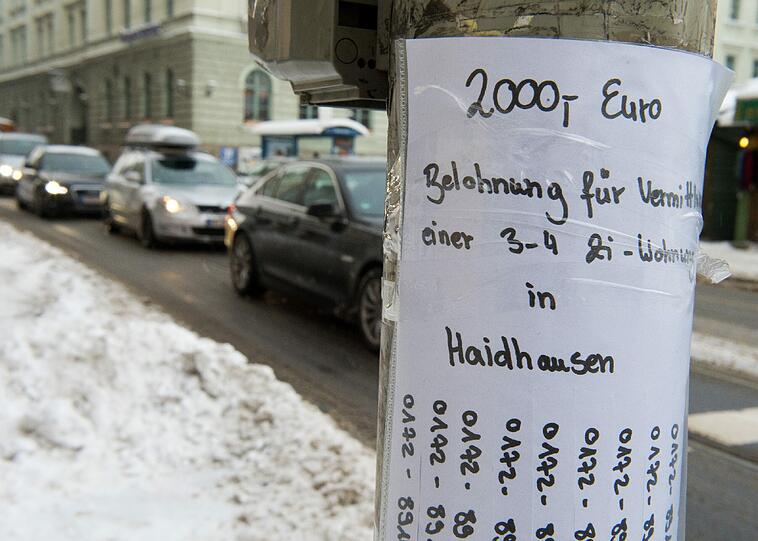 2000,- Euro
Belohnung für
einer 3-4 Zi-Wohnung
in
Haidhausen
0172 - 89
0172 - 89
0172 - 89
0172 - 8
0172 -
0172 - 8
0172 - 8
0172 - 8
0172 - 8